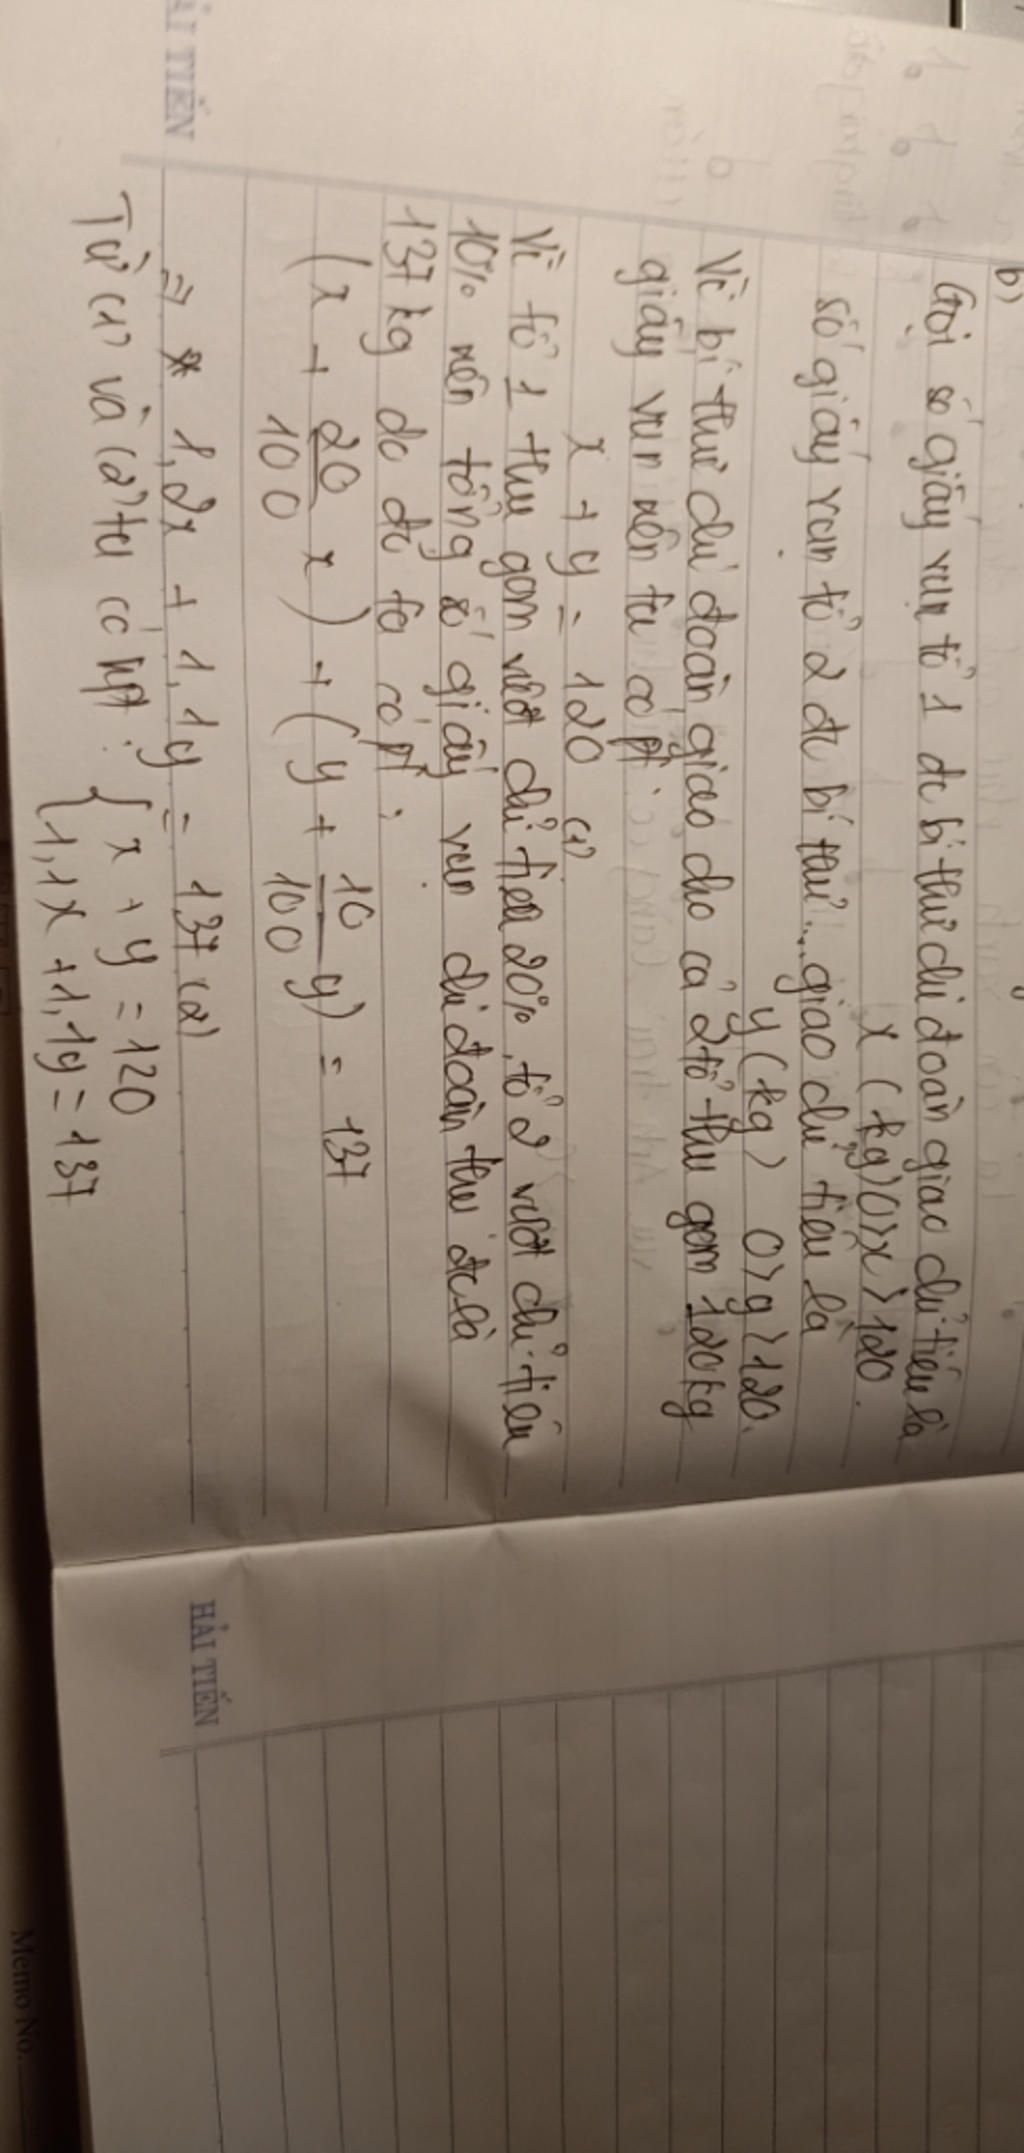 b)
Gọi số giấy vụn tổ 1 đc bí thư chi đoàn giao chỉ tiêu là
x (kg) 0>x>120.
số giấy vụn tổ 2 đc bí thư... giao chỉ tiêu là
y (kg) 0>y>120.
Vì bí thư chi đoàn giao cho cả 2 tổ thu gom 120kg
giấy vụn nên ta có pt:
x + y = 120 (1)
Vì tổ 1 thu gom vượt chỉ tiêu 20%, tổ 2 vượt chỉ tiêu
10% nên tổng số giấy vụn chi đoàn thu đc là
137 kg do đó ta có pt:
(x + 20/100 x) + (y + 10/100 y) = 137
=> 1,2x + 1,1y = 137 (2)
Từ (1) và (2) ta có hpt: { x + y = 120
1,1x + 1,1y = 137
HẢI TIẾN
HẢI TIẾN
Memo No.